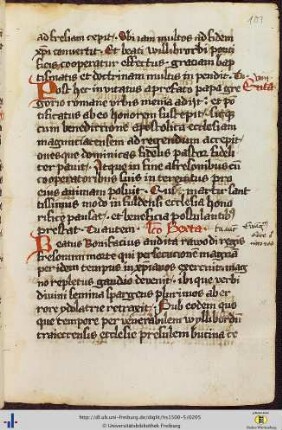 ad fresiam cepit. Ubi iam multos ad fidem
xpi convertit. Et beati willibrordi ponti
ficis cooperator effectus. graciam bap
tismatis et doctrinam multis inpendit. Tu
Post hec invitatus a prefato papa gre
gorio romane urbis menia adijt: et po
tificatus ab eo honorem suscepit. Sicque
cum benedictione apostolica ecclesiam
magunciacensem ad regendum accepit
ovesque dominicas fidelis pastor felici
ter pavit. Atque in fine a fresonibus cum
cooperatoribus suis in
eius animam posuit. martir sanc
tissimus modo in fuldensi ecclesia hono
rifice pausat. et beneficia postulantibus
prestat. Tu autem. Lco Sexta.
Beatus Bonifacius audita ratvodi regis
fresonum morte qui persecucionem magna
per idem tempus in xpianos exercuit mag
no repletus gaudio devenit. ibi que verbi
divini semina spargens plurimos ab er
rore ydolatrie retraxit. Sub eodem quo
que tempore per venerabilem wyllibordum
traiectensis ecclesie presulem
http://dl.ub.uni-freiburg.de/diglit/hs1500-5/0205
© Universitätsbibliothek Freiburg